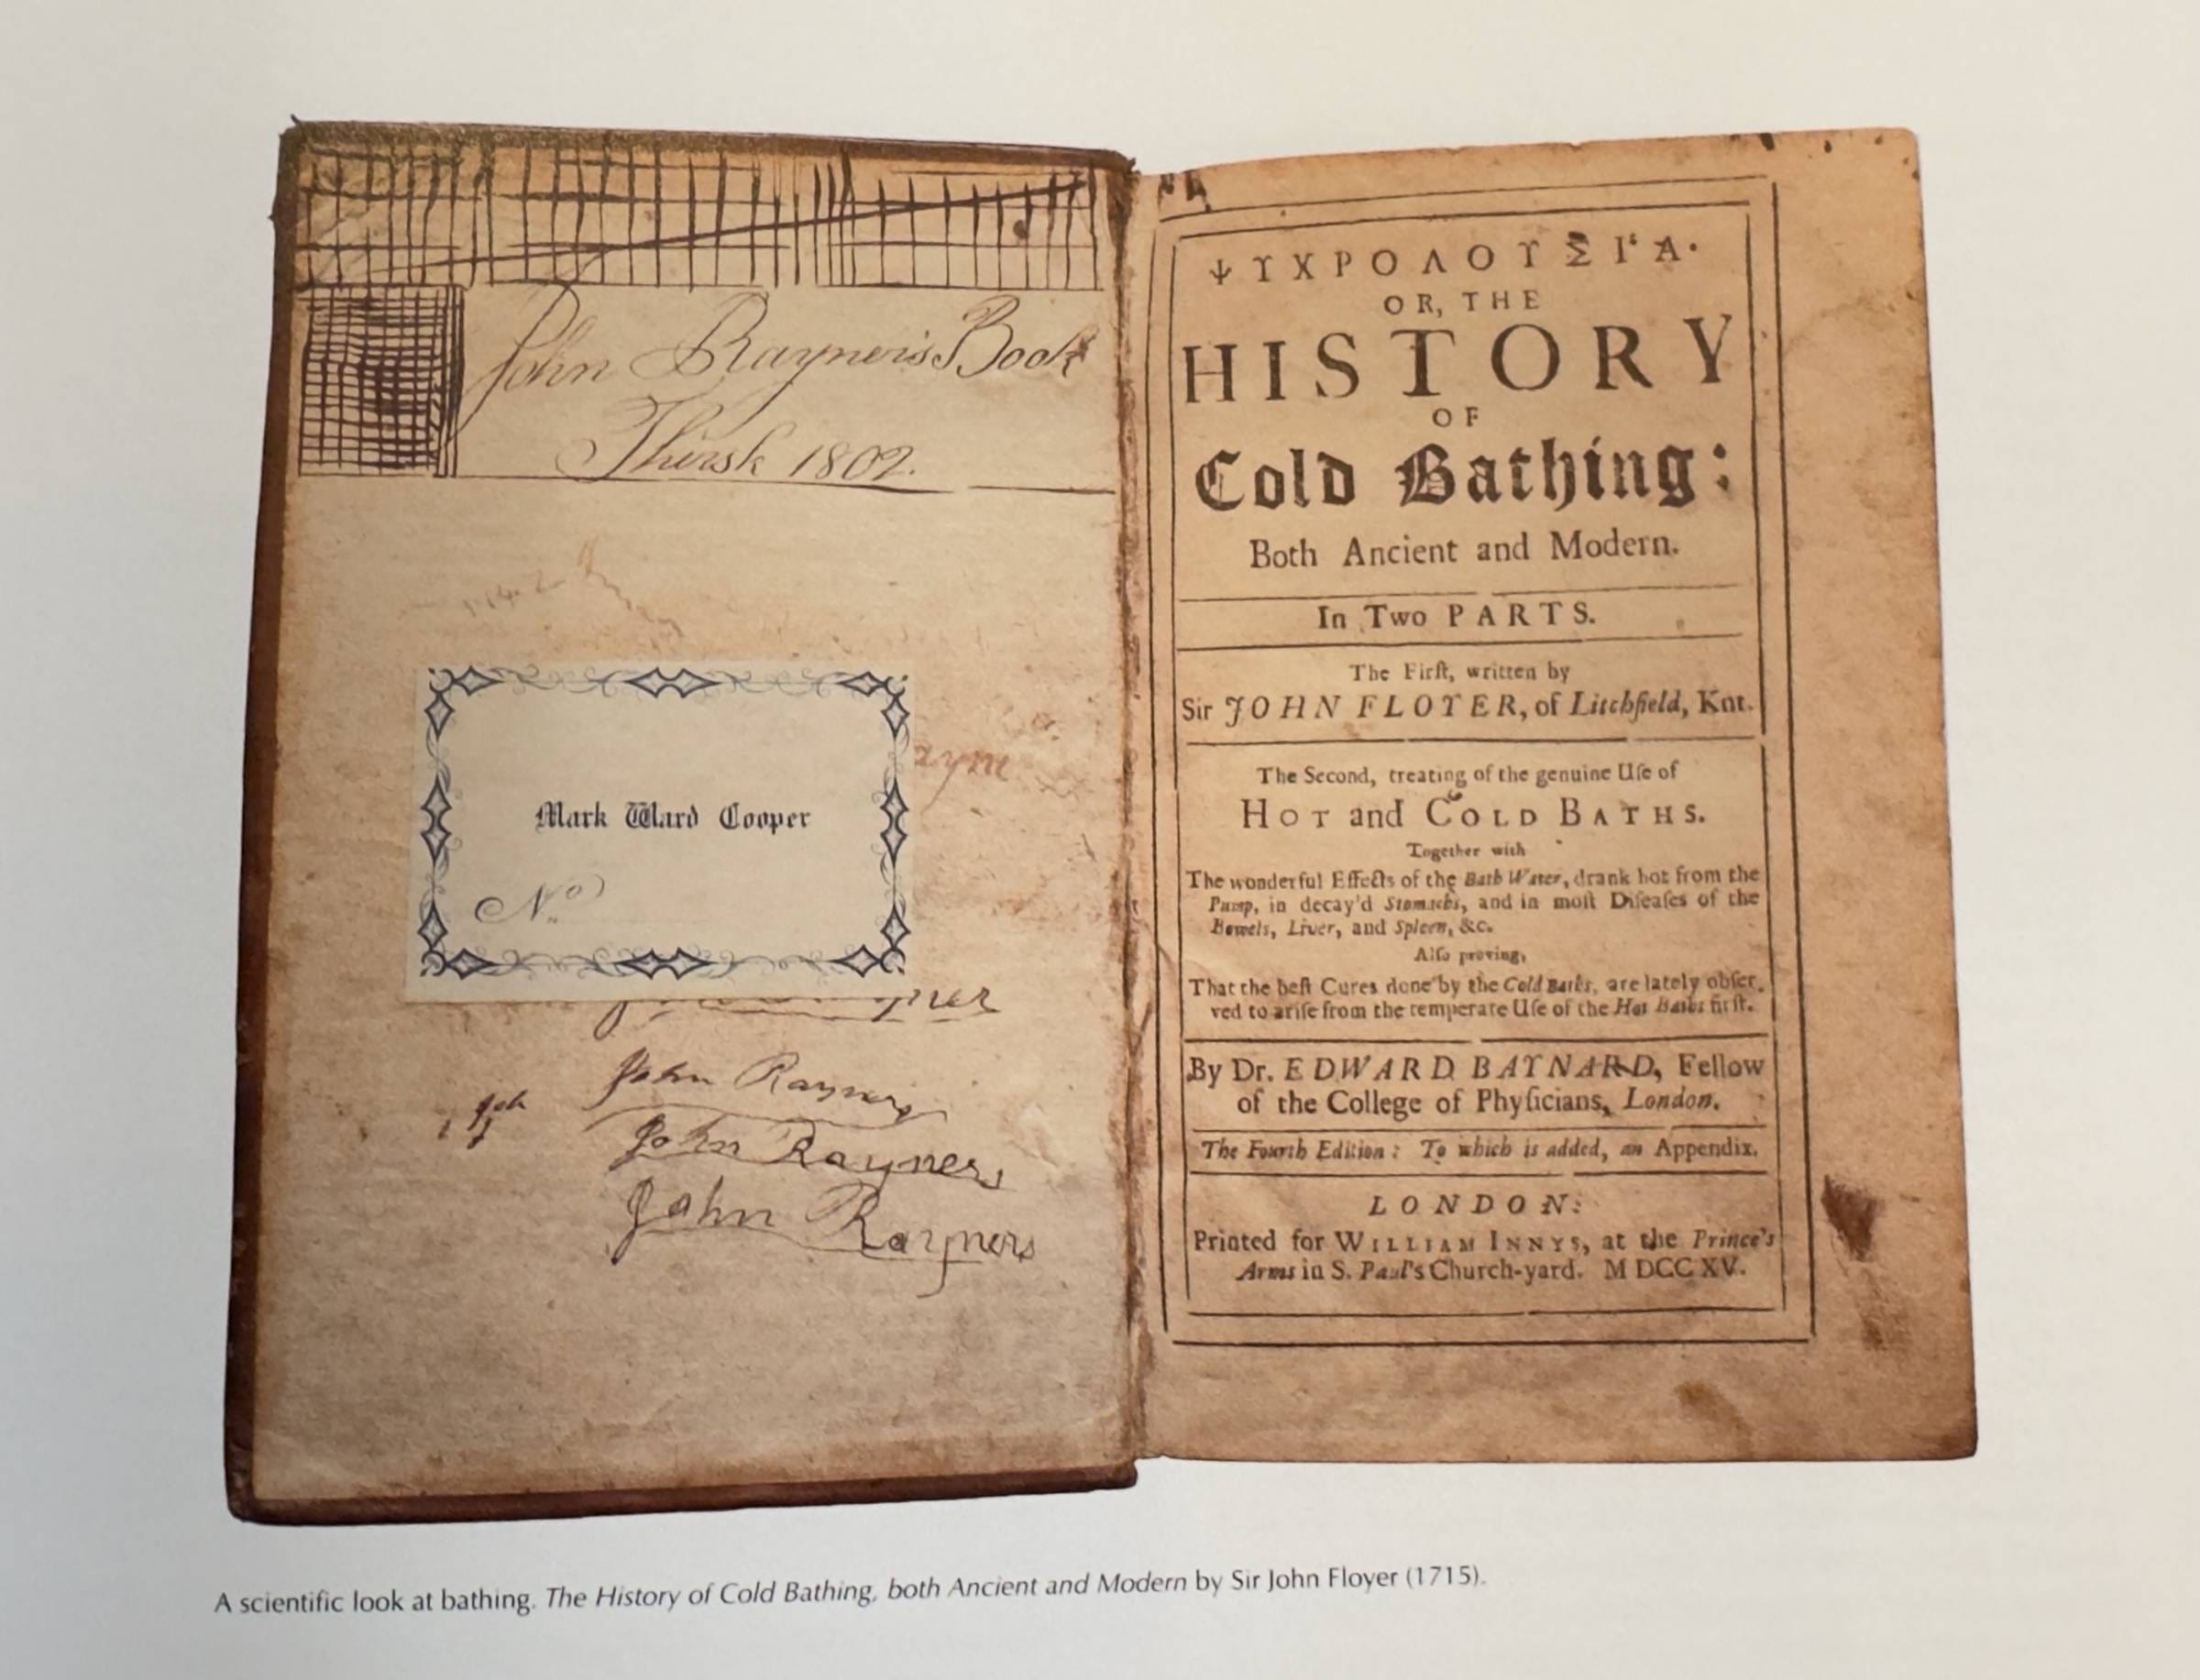 John Rayner's Book
Thirsk 1802.
aym
Mark Ward Cooper
No
ner
John Rayners
Joh
John Rayners
John Rayners
ΨΥΧΡΟΛΟΥΣΙ'Α.
OR, THE
HISTORY
OF
Cold Bathing:
Both Ancient and Modern.
In Two PARTS.
The Firſt, written by
Sir JOHN FLOYER, of Litchfield, Knt.
The Second, treating of the genuine Uſe of
HOT and COLD BATHS.
Together with
The wonderful Effects of the Bath Water, drank hot from the
Pump, in decay'd Stomachs, and in moſt Diſeaſes of the
Bowels, Liver, and Spleen, &c.
Alſo proving,
That the beſt Cures done by the Cold Baths, are lately obſer-
ved to ariſe from the temperate Uſe of the Hot Baths firſt.
By Dr. EDWARD BAYNARD, Fellow
of the College of Phyſicians, London.
The Fourth Edition: To which is added, an Appendix.
LONDON:
Printed for WILLIAM INNYS, at the Prince's
Arms in S. Paul's Church-yard. M DCC XV.
A scientific look at bathing. The History of Cold Bathing, both Ancient and Modern by Sir John Floyer (1715).